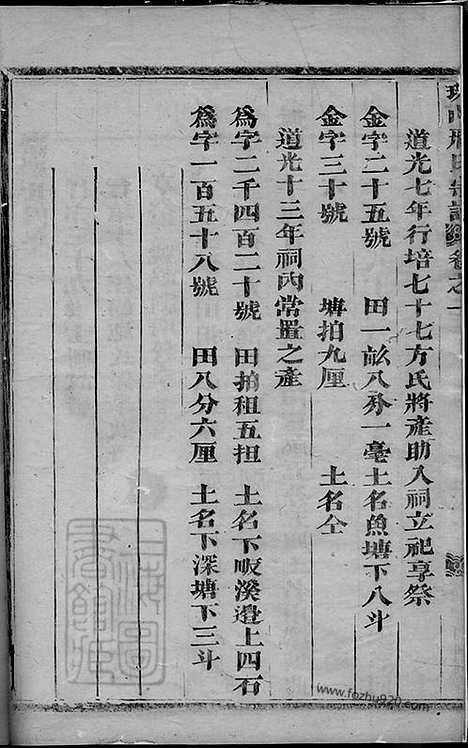 氏宗譜卷之一
道光七年行培七十七方氏將產助入祠立祀享祭
金字二十五號 田一畝八分一毫土名魚塘下八斗
金字三十號 塘拍九厘 土名仝
道光十三年祠內常置之產
為字二千四百二十號 田拍租五担 土名下坂溪邉上四石
為字一百五十八號 田八分六厘 土名下深塘下三斗
上海圖書館藏
www.fozhu920.com